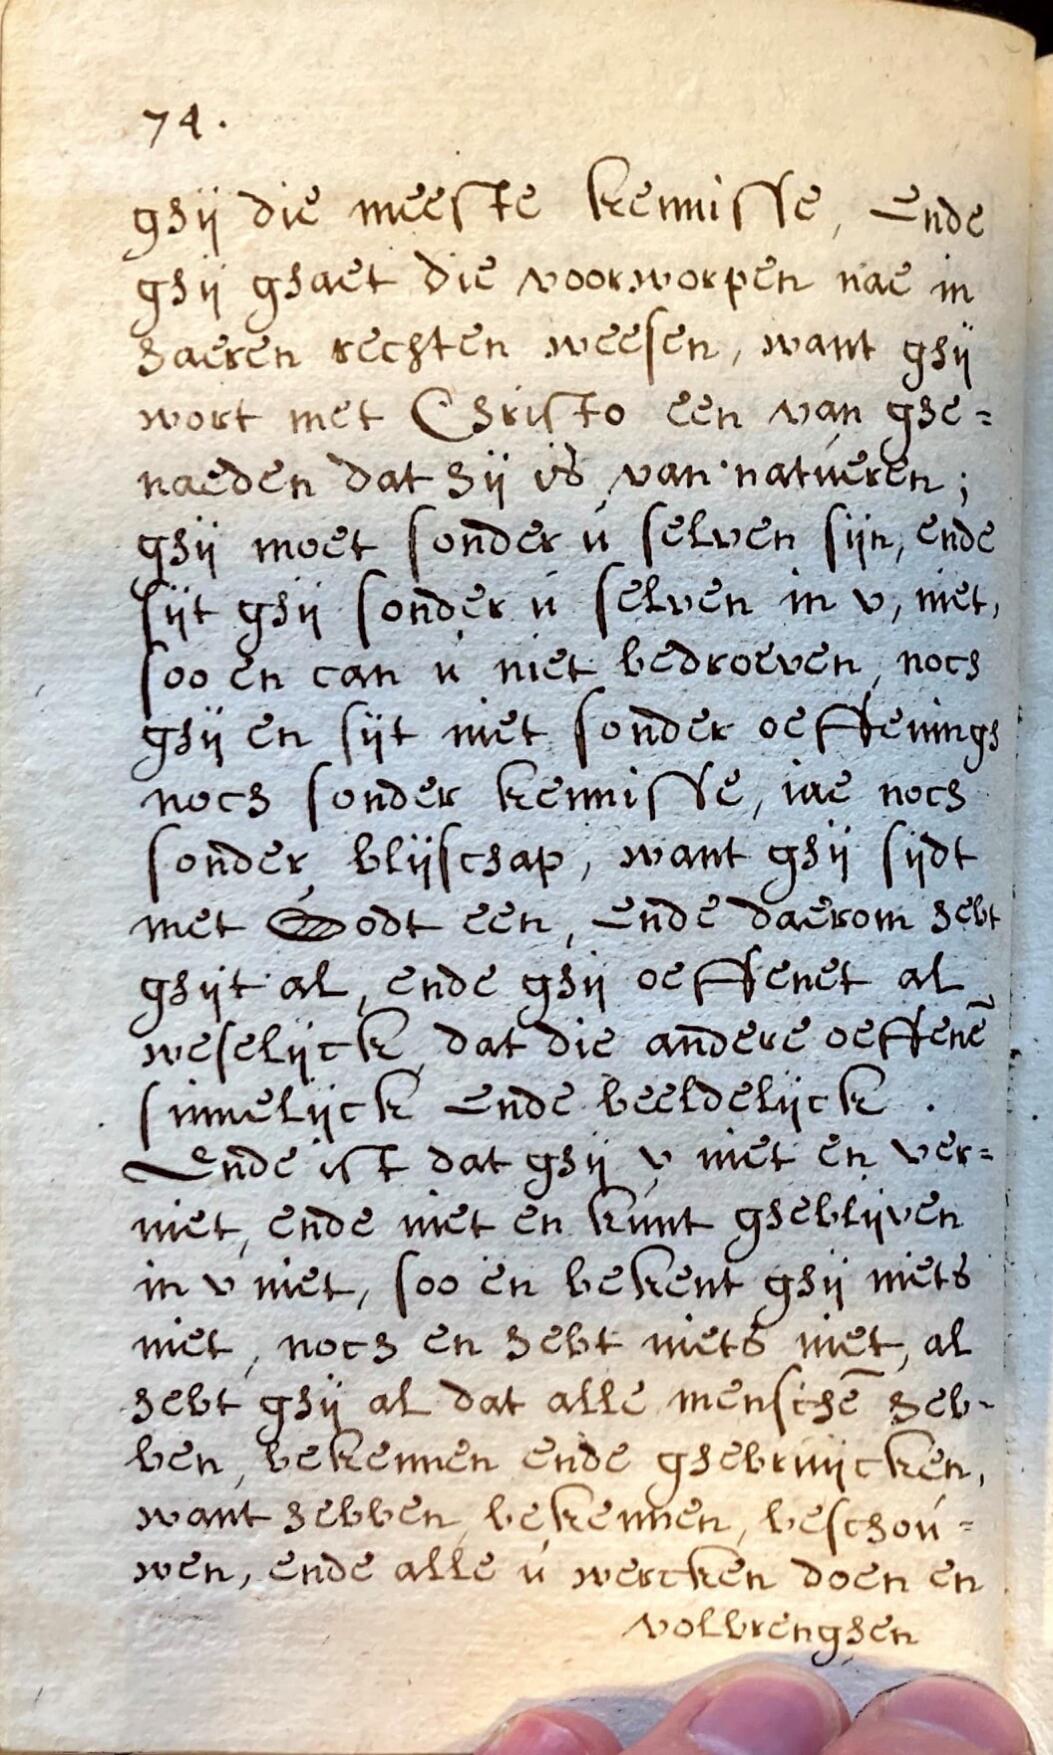 74.
ghij die meeste kennisse, Ende
ghij ghaet die voorworpen nae in
haeren rechten weesen, want ghij
wort met Christo een van ghe=
naeden dat hij is van natueren;
ghij moet sonder ú selven sijn, ende
sijt ghij sonder ú selven in v, niet,
soo en can ú niet bedroeven, noch
ghij en sijt niet sonder oeffeningh
noch sonder kennisse, iae noch
sonder blijschap, want ghij sijdt
met Godt een, Ende daerom hebt
ghijt al, ende ghij oeffenet al
weselijck, dat die andere oeffenē
sinnelijck Ende beeldelijck.
Ende ist dat ghij v niet en ver=
niet, ende niet en kunt gheblijven
in v niet, soo en bekent ghij niets
niet, noch en hebt niets niet, al
hebt ghij al dat alle menschē heb-
ben, bekennen ende ghebruijcken,
want hebben, bekennen, beschoú=
wen, ende alle ú wercken doen en
volbrenghen